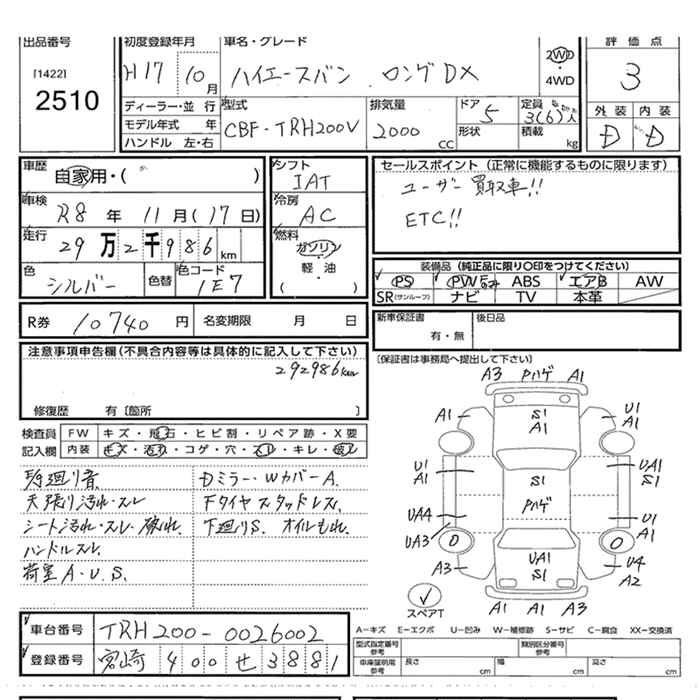 出品番号
[1422]
2510
初度登録年月
H17 10月
車名・グレード
ハイエースバン ロングDX
2WD
・
4WD
評価点
3
外装 内装
D D
ディーラー・並行
モデル年式 年
ハンドル 左・右
型式
CBF-TRH200V
排気量
2000 cc
ドア
5
形状
定員
3(6)人
積載
kg
車歴
自家用・( )
車検
R8年 11月(17日)
走行
29万2千986km
色
シルバー
色替
色コード
1E7
シフト
IAT
冷房
AC
燃料
ガソリン
・
軽油
( )
セールスポイント(正常に機能するものに限ります)
ユーザー買取車!!
ETC!!
装備品(純正品に限り○印をつけてください)
PS PW ABS エアB AW
SR(サンルーフ) ナビ TV 本革
R券 10740円 名変期限 月 日
新車保証書
有・無
後日品
[保証書は事務局へ提出して下さい)
注意事項申告欄(不具合内容等は具体的に記入して下さい)
292986km
修復歴 有[箇所 ]
検査員 FW キズ・飛石・ヒビ割・リペア跡・X要
記入欄 内装 キズ・汚れ・コゲ・穴・スレ・キレ・破レ
天張り汚れ・スレ
シート汚れ・スレ・破れ.
ハンドルスレ.
荷室A・U.S.
Dミラー・WカバーA.
Fタイヤスタッドレス.
下廻りS. オイルもれ.
A3 Pハゲ A1
A1 S1 A1 U1 A1
U1 A1 S1 UA1 S1
Pハゲ
UA4 U1 A1
UA3
A3 UA1 S1 U4 A2
A1 A1 A3
スペアT
車台番号 TRH200-0026002
登録番号 宮崎 400 せ 3881
A−キズ E−エクボ U−凹み W−補修跡 S−サビ C−腐食 XX−交換済
型式指定番号
参考
類別区分番号
参考
車庫証明用
参考
長さ cm 幅 cm 高さ cm